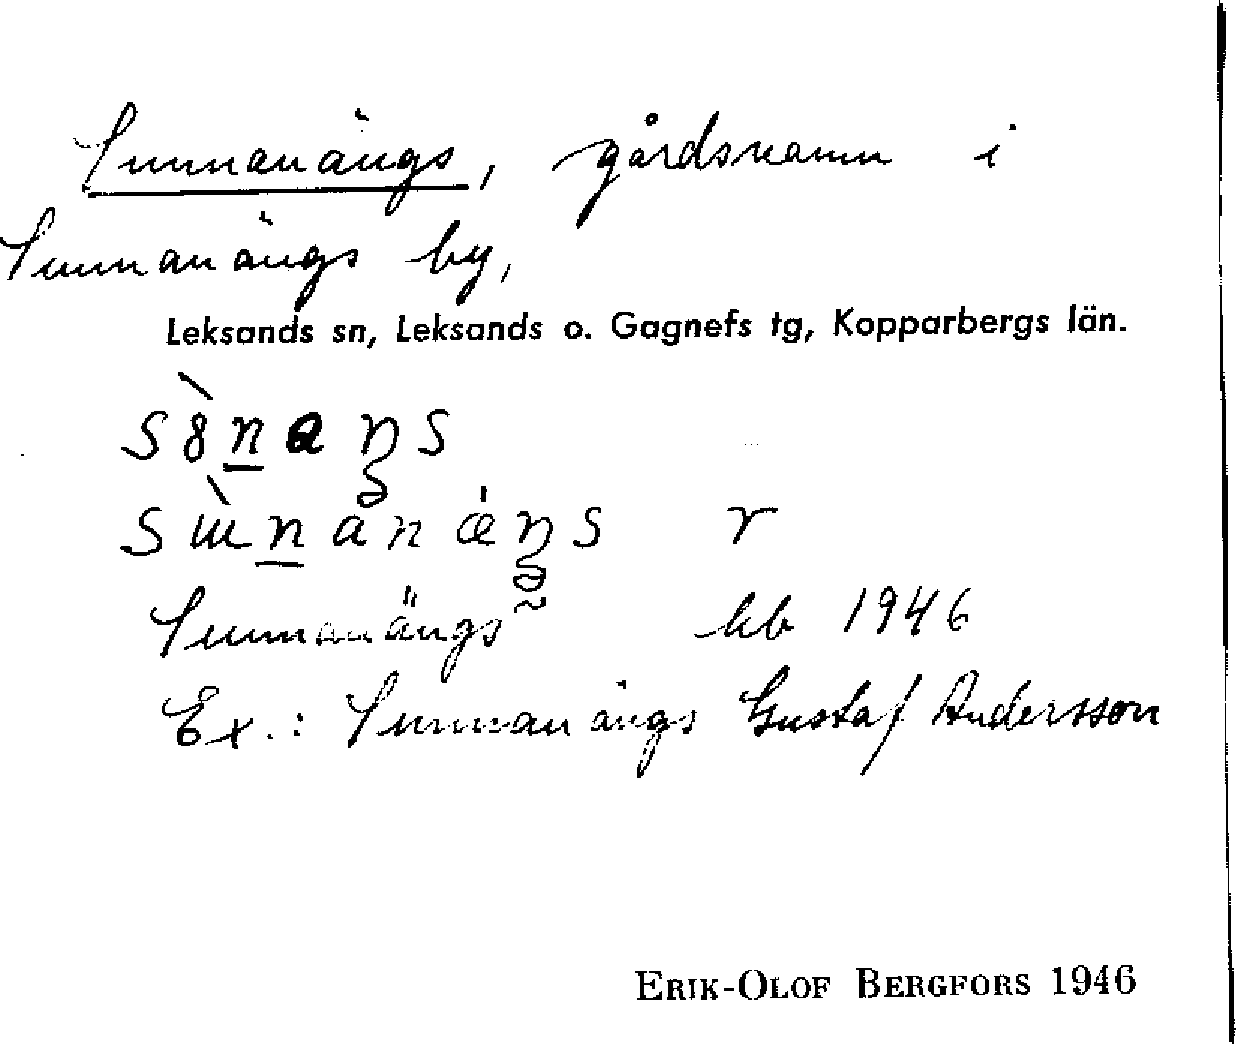 Sunnanängs, gårdsnamn i
Sunnanängs by,
Leksands sn, Leksands o. Gagnefs tg, Kopparbergs län.
r
Sunnanängs~ kb 1946
Ex.: Sunnanängs Gustaf Andersson
ERIK-OLOF BERGFORS 1946